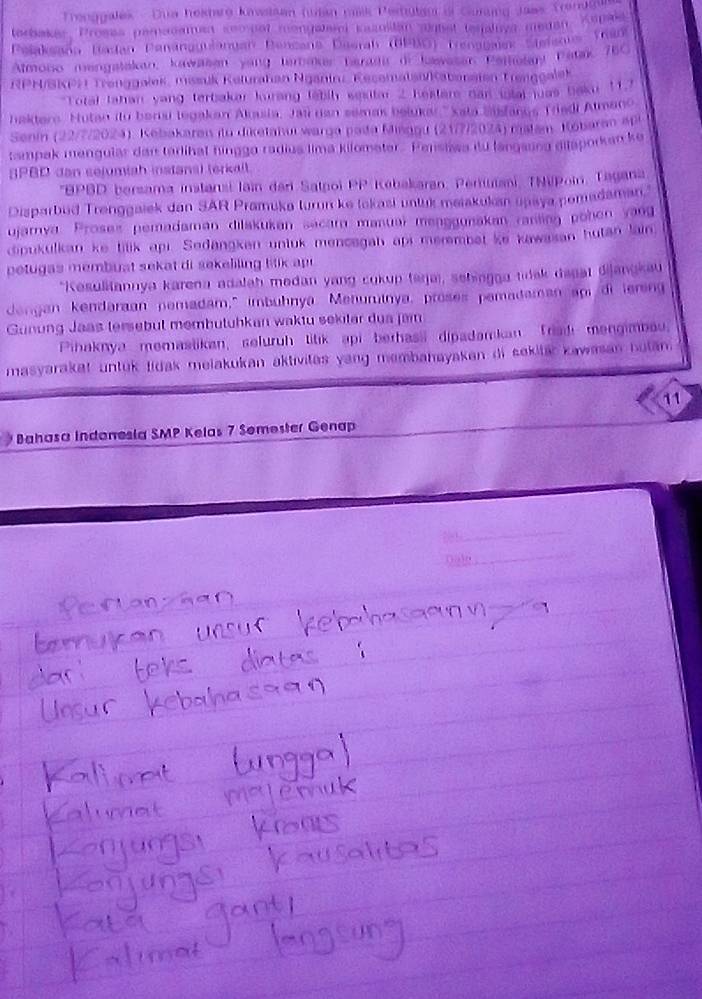 Trenggalek - Dua hektare kawasan hutan milik Perhutani di Gunung Jaas Trenggalek
terbakar. Proses pemadaman sempat mengalami kesulitan akibat terjalnya medan. Kepala
Pelaksana Badan Penanggulangan Bencana Daerah (BPBD) Trenggalek Stefanus Triadi
Atmono mengatakan, kawasan yang terbakar berada di kawasan Perhutani Petak 76C
RPH/BKPH Trenggalek, masuk Kelurahan Ngantru, Kecamatan/Kabupaten Trenggalek.
"Total lahan yang terbakar kurang lebih sekitar 2 hektare dari total luas baku 11,7
hektare. Hutan itu berisi tegakan Akasia, Jati dan semak belukar," kata Stefanus Triadi Atmono,
Senin (22/7/2024). Kebakaran itu diketahui warga pada Minggu (21/7/2024) malam. Kobaran api
tampak mengular dan terlihat hingga radius lima kilometer. Peristiwa itu langsung dilaporkan ke
BPBD dan sejumlah instansi terkait.
"BPBD bersama instansi lain dari Satpol PP Kebakaran, Perhutani, TNI/Polri, Tagana,
Disparbud Trenggalek dan SAR Pramuka turun ke lokasi untuk melakukan upaya pemadaman,"
ujarnya. Proses pemadaman dilakukan secara manual menggunakan ranting pohon yang
dipukulkan ke titik api. Sedangkan untuk mencegah api merembet ke kawasan hutan lain,
petugas membuat sekat di sekeliling titik api.
"Kesulitannya karena adalah medan yang cukup terjal, sehingga tidak dapat dijangkau
dengan kendaraan pemadam," imbuhnya. Menurutnya, proses pemadaman api di lereng
Gunung Jaas tersebut membutuhkan waktu sekitar dua jam.
Pihaknya memastikan, seluruh titik api berhasil dipadamkan. Triadi mengimbau,
masyarakat untuk tidak melakukan aktivitas yang membahayakan di sekitar kawasan hutan.
11
Bahasa Indonesia SMP Kelas 7 Semester Genap
Date
Pertanyaan
temukan unsur kebahasaannya
dari teks diatas :
Unsur kebahasaan
Kalimat tunggal
Kalimat majemuk
Konjungsi kronis
Konjungsi kausalitas
Kata ganti
Kalimat langsung